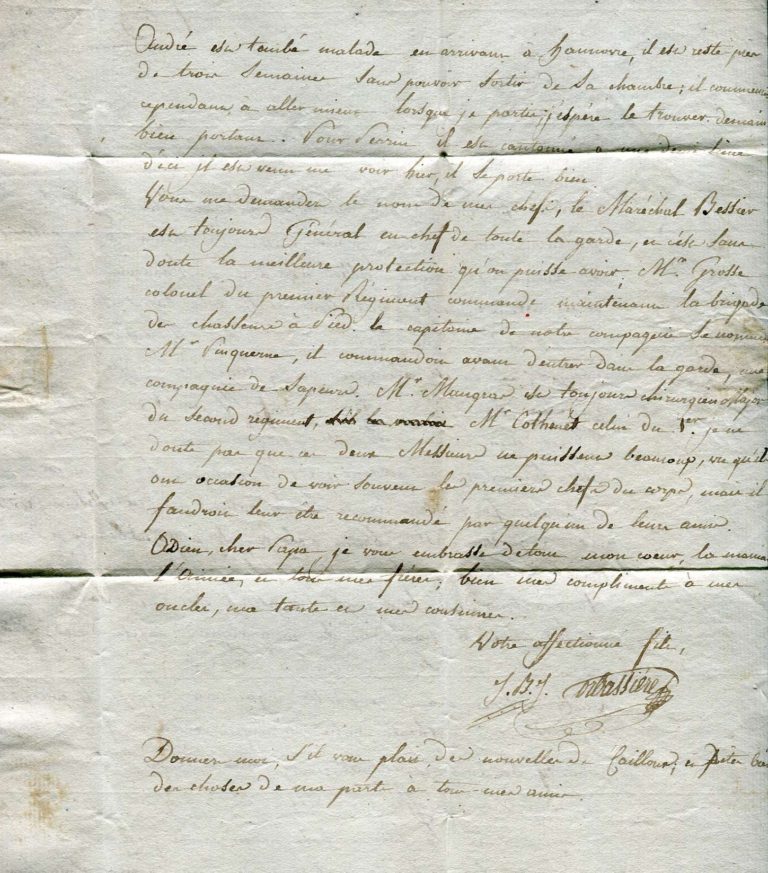 André est tombé malade en arrivant à hannovre, il est resté près
de trois Semaines Sans pouvoir Sortir de Sa chambre; il
cependant à aller mieux lorsque je partis; j'espère le trouver demain
bien portant. Pour Perrin il est cantonné à une demi lieue
d'ici il est venu me voir hier, il se porte bien
Vous me demandez le nom de mes chefs, le Maréchal Bessier
est toujours Général en chef de toute la garde, et c'est Sans
doute la meilleure protection qu'on puisse avoir, Mr. Grosse
colonel du premier Régiment commande maintenant la brigade
des chasseurs à Pied. le capitaine de notre compagnie Se nomme
Mr. il commandoit avant d'entrer dans la garde, une
compagnie de Sapeurs. Mr. est toujours chirurgien Major
du Second régiment, Mr. Cothenet celui du 1er. je ne
doute pas que ces deux Messieurs ne puissent beaucoup, vu qu'ils
ont occasion de voir Souvent les premiers chefs du corps, mais il
faudroit leur être recommandé par quelqu'un de leurs amis.
Adieu, cher Papa je vous embrasse de tout mon coeur, la maman
et tous mes frères; bien mes compliments à mes
oncles, ma tante et mes cousines.
Votre affectionné fils,
J. B. J.
Donnez moi, S'il vous plait, des nouvelles de Cailloux, et
des choses de ma part à tous mes amis.